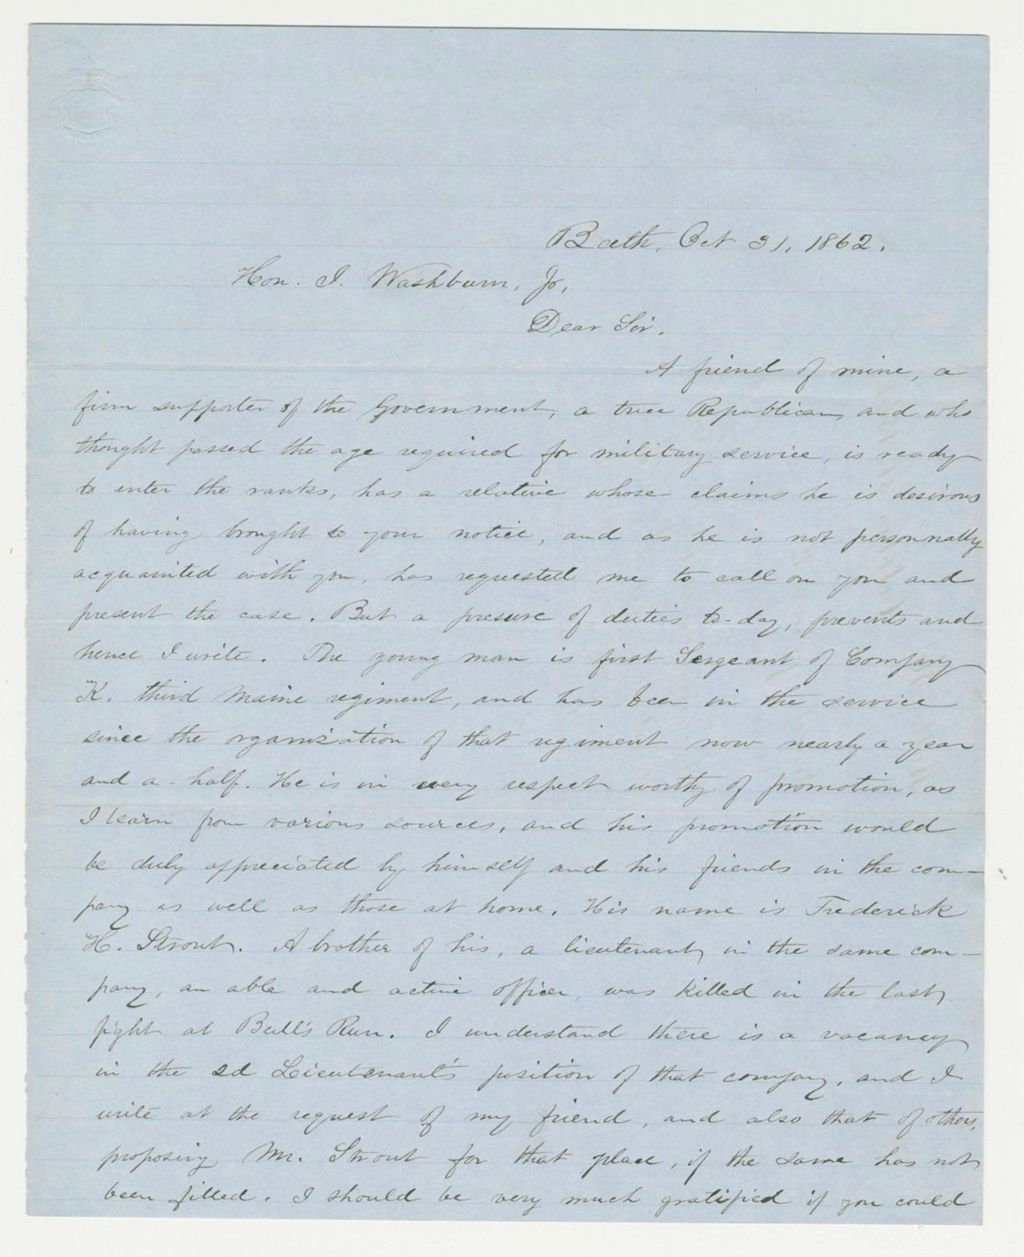 Bath, Oct 31, 1862.
Hon. I. Washburn, Jr,
Dear Sir.
A friend of mine, a
firm supporter of the Government, a true Republican, and who
thought passed the age required for military service, is ready
to enter the ranks, has a relative whose claims he is desirous
of having brought to your notice, and as he is not personnally
acquainted with you, has requested me to call on you and
present the case. But a presure of duties to-day, prevents and
hence I write. The young man is first Sergeant of Company
K. third Maine regiment, and has been in the service
since the organization of that regiment now nearly a year
and a-half. He is in every respect worthy of promotion, as
I learn from various sources, and his promotion would
be duly appreciated by himself and his friends in the com-
pany as well as those at home. His name is Frederick
H. Strout. A brother of his, a lieutenant, in the same com-
pany, an able and active officer, was killed in the last
fight at Bull's Run. I understand there is a vacancy
in the 2d Lieutenant's position of that company, and I
write at the request of my friend, and also that of others,
proposing Mr. Strout for that place, if the same has not
been filled. I should be very much gratified if you could